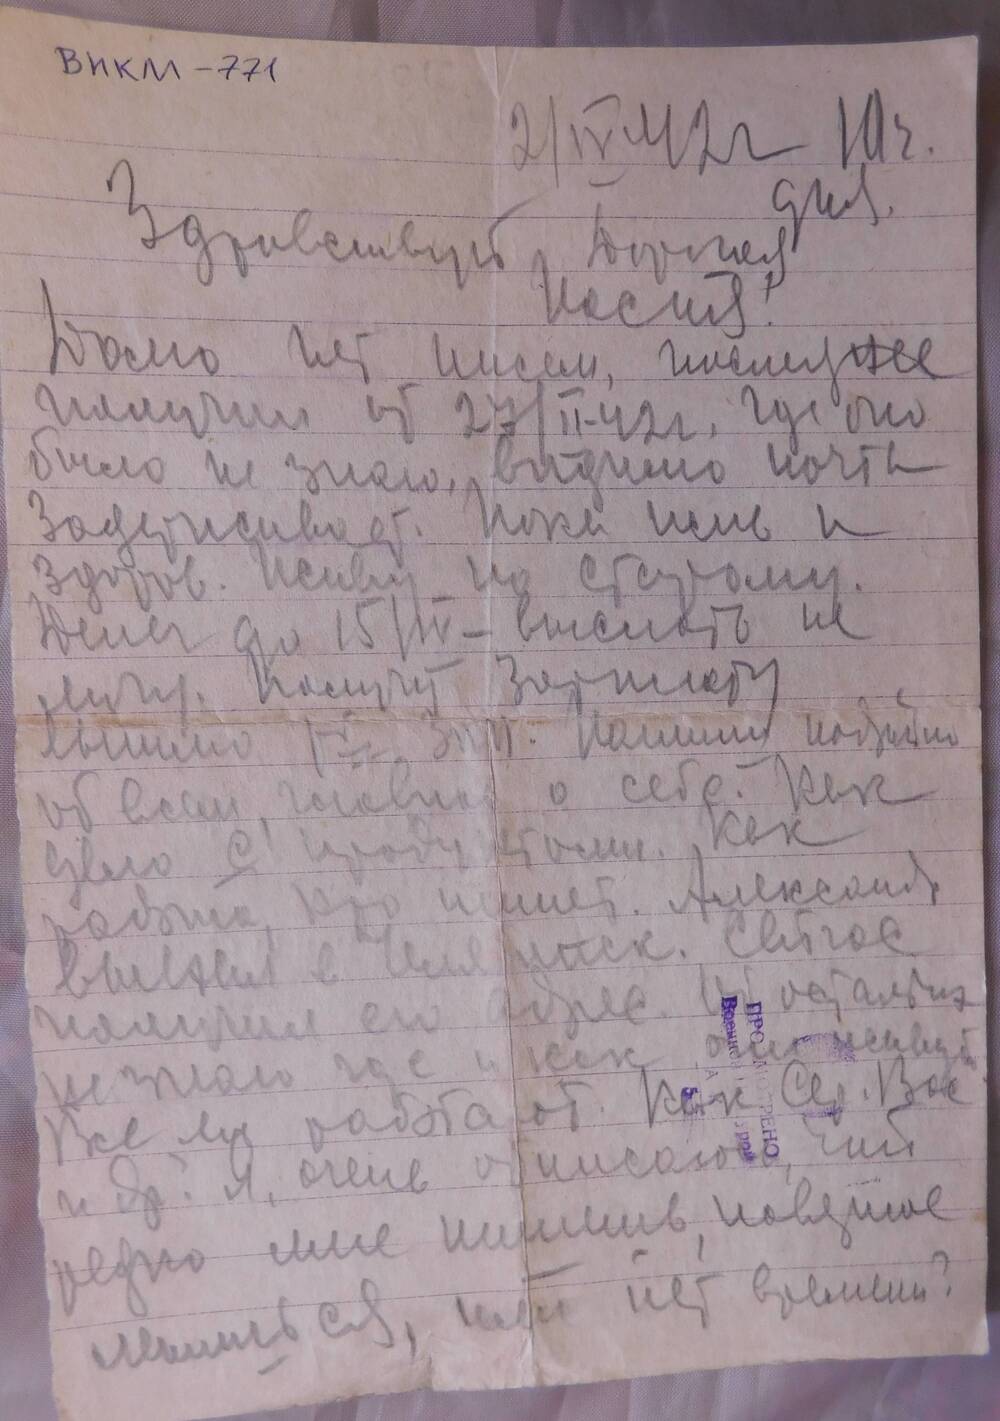 ВИКМ-771
2/IV-42г 10ч.
дня.
Здравствуй, Дорогая
Настя!
Давно нет писем, последнее
получил от 27/II-42г. Где оно
было не знаю, видимо почта
Задерживает. Пока жив и
здоров. Живу по старому.
Денег до 15/IV- выслать не
могу. Получу Зарплату
вышлю Напиши подробно
обо всем, о себе. Как
дело с продуктами. Как
работа, кто пишет. Александр
выехал в Сейчас
получил его адрес. От остальных
не знаю где и как они живут.
Все ли работают. Как Сер. Вас
и др? Я, очень что
редко мне пишешь, наверное
ленишься, или нет времени?
ПРОСМОТРЕНО
Военной Цензурой